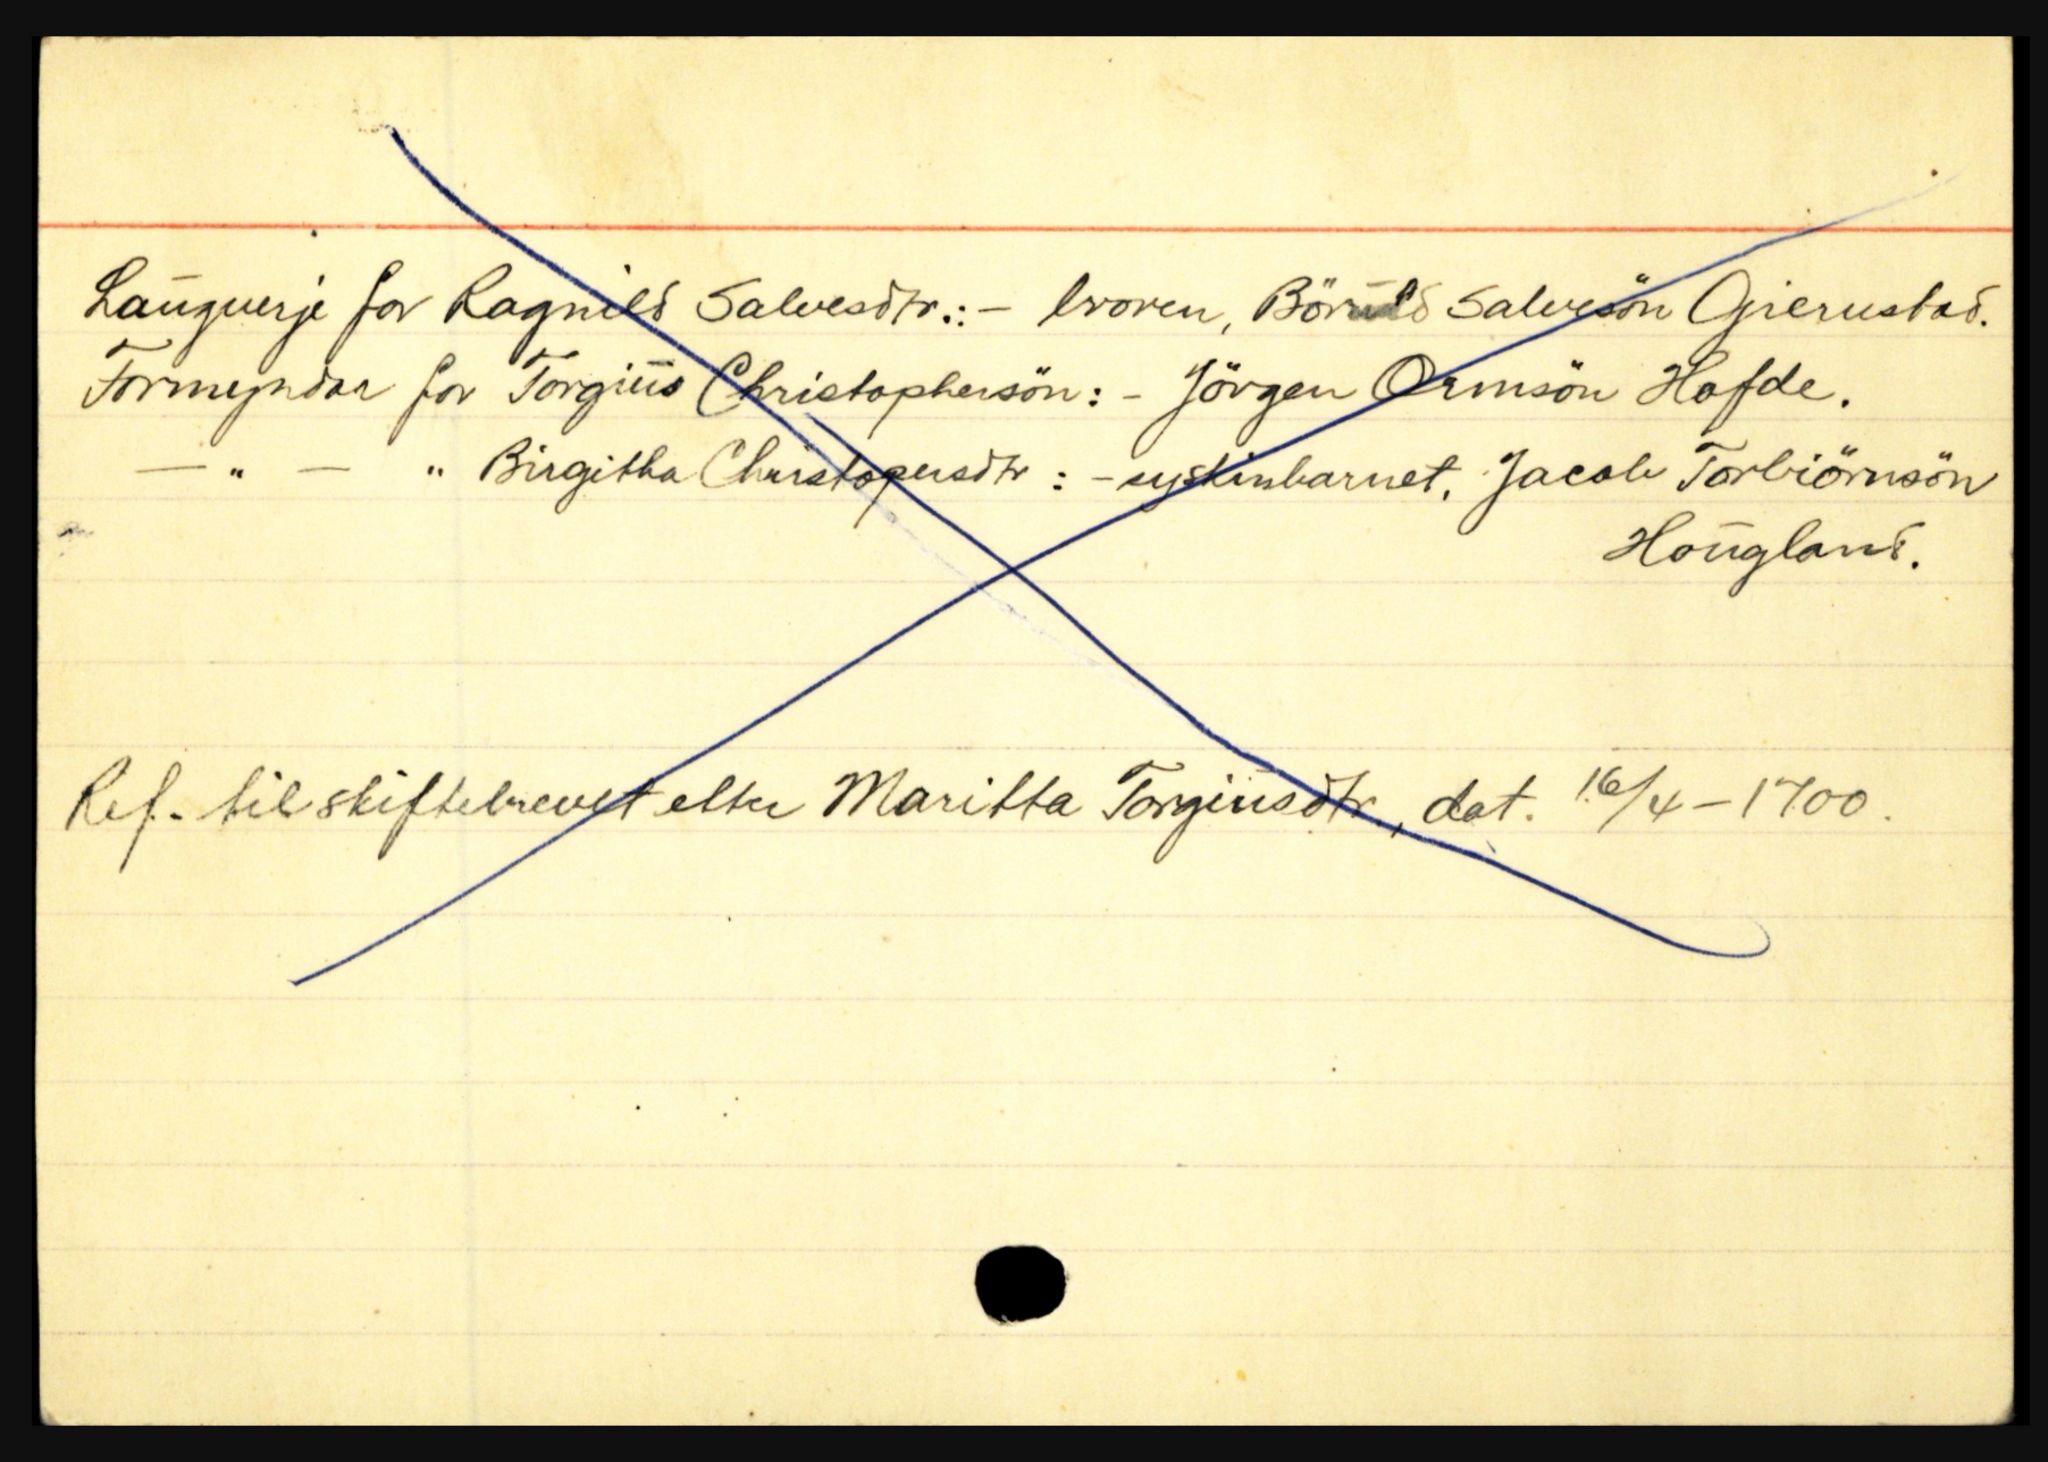 Laugverje for Ragnild Salvesdtr.: - broren, Böruld Salvesön Gierustad.
Formyndar for Torgius Christophersön: - Jörgen Ormsön Hafde.
— " — " Birgitha Christopersdtr : - syskinbarnet, Jacob Torbiörnsön
Hougland.
Ref. til skiftebrevet etter Maritta Torgiusdtr., dat. 16/4 - 1700.